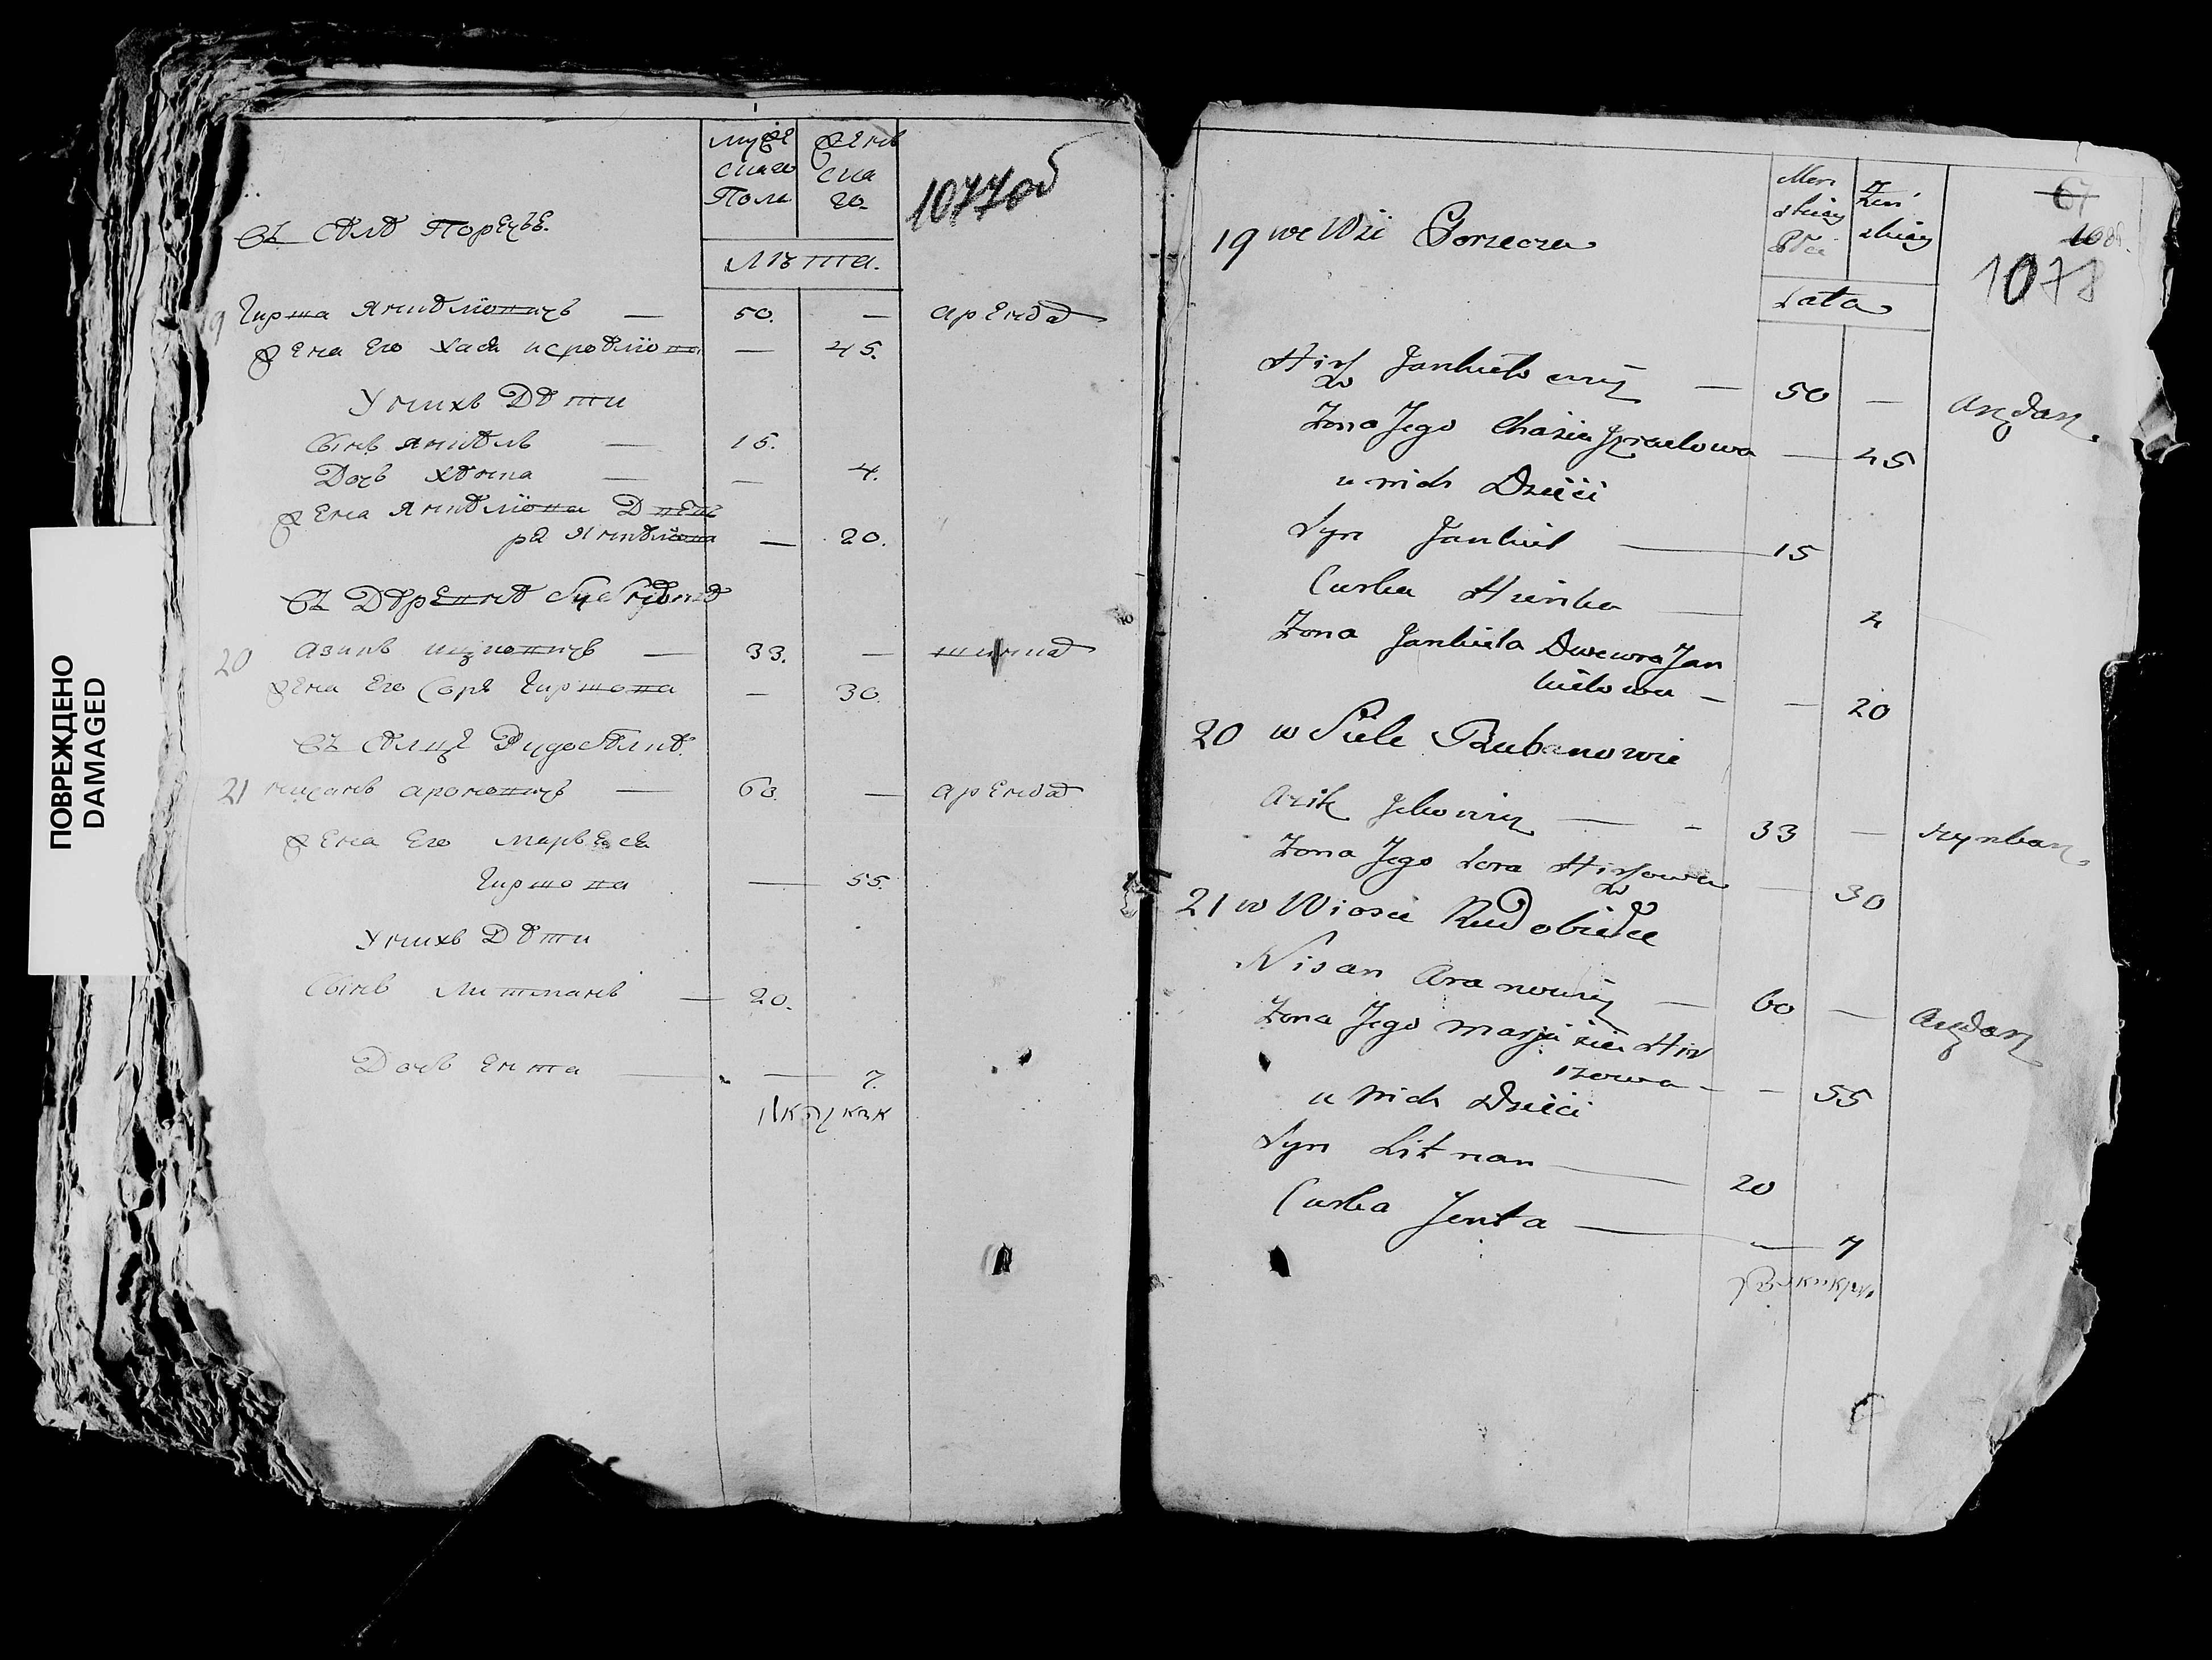 ПОВРЕЖДЕНО
DAMAGED
1077об
мужс
скаго
Пола
женс
ска
го.
Лѣта.
Въ селе Поречье.
9 Гирша Янкелiовичъ — 50. — аренда
жена Его Хася — 45.
У нихъ Дети
Сынъ Янкель — 15.
Дочь Хенка — — 4.
жена Янкелiова Двей
ра Янкелiова — 20.
Въ Деревне
20 Азикъ ицковичъ — 33. — шинка
жена Его Сора Гиршова — 30.
Въ селце Рудобелке.
21 Нисанъ Ароновичъ — 60. — аренда
жена Его Марьяся
Гиршова — 55.
У нихъ Дети
Сынъ Литманъ — 20.
Дочь Ента — — 7.
67
1078
Męz
skiey
Płci
Żeń
skiey
Lata
19 we Wsi Porzecza
Hirsz Jankielowicz — 50 — Arędarz
Żona Jego Chasia Izraelowa — 45
u nich Dzieci
Syn Jankiel — 15
Curka Hienka — 4
Żona Jankiela Dwewra Jan
kielowa — — 20
20 w Siele Rubanowie
Azik Jckowicz — - 33 — szynkarz
Żona Jego Sora Hirszowa — 30
21 w Wiosce Rudobiełce
Nisan Aranowicz — 60 — Arędarz
Żona Jego Marjasia Hir
szowa - — 55
u nich Dzieci
Syn Litman — 20
Curka Jenta — — 7